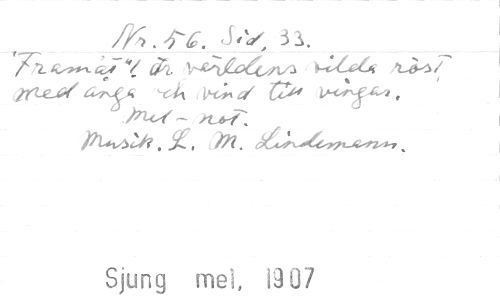 Nr. 56. Sid. 33.
"Framåt"! är världens vilda röst,
med ånga och vind till vingar.
Mel-not.
Musik. L. M. Lindemann.
Sjung mel, 1907